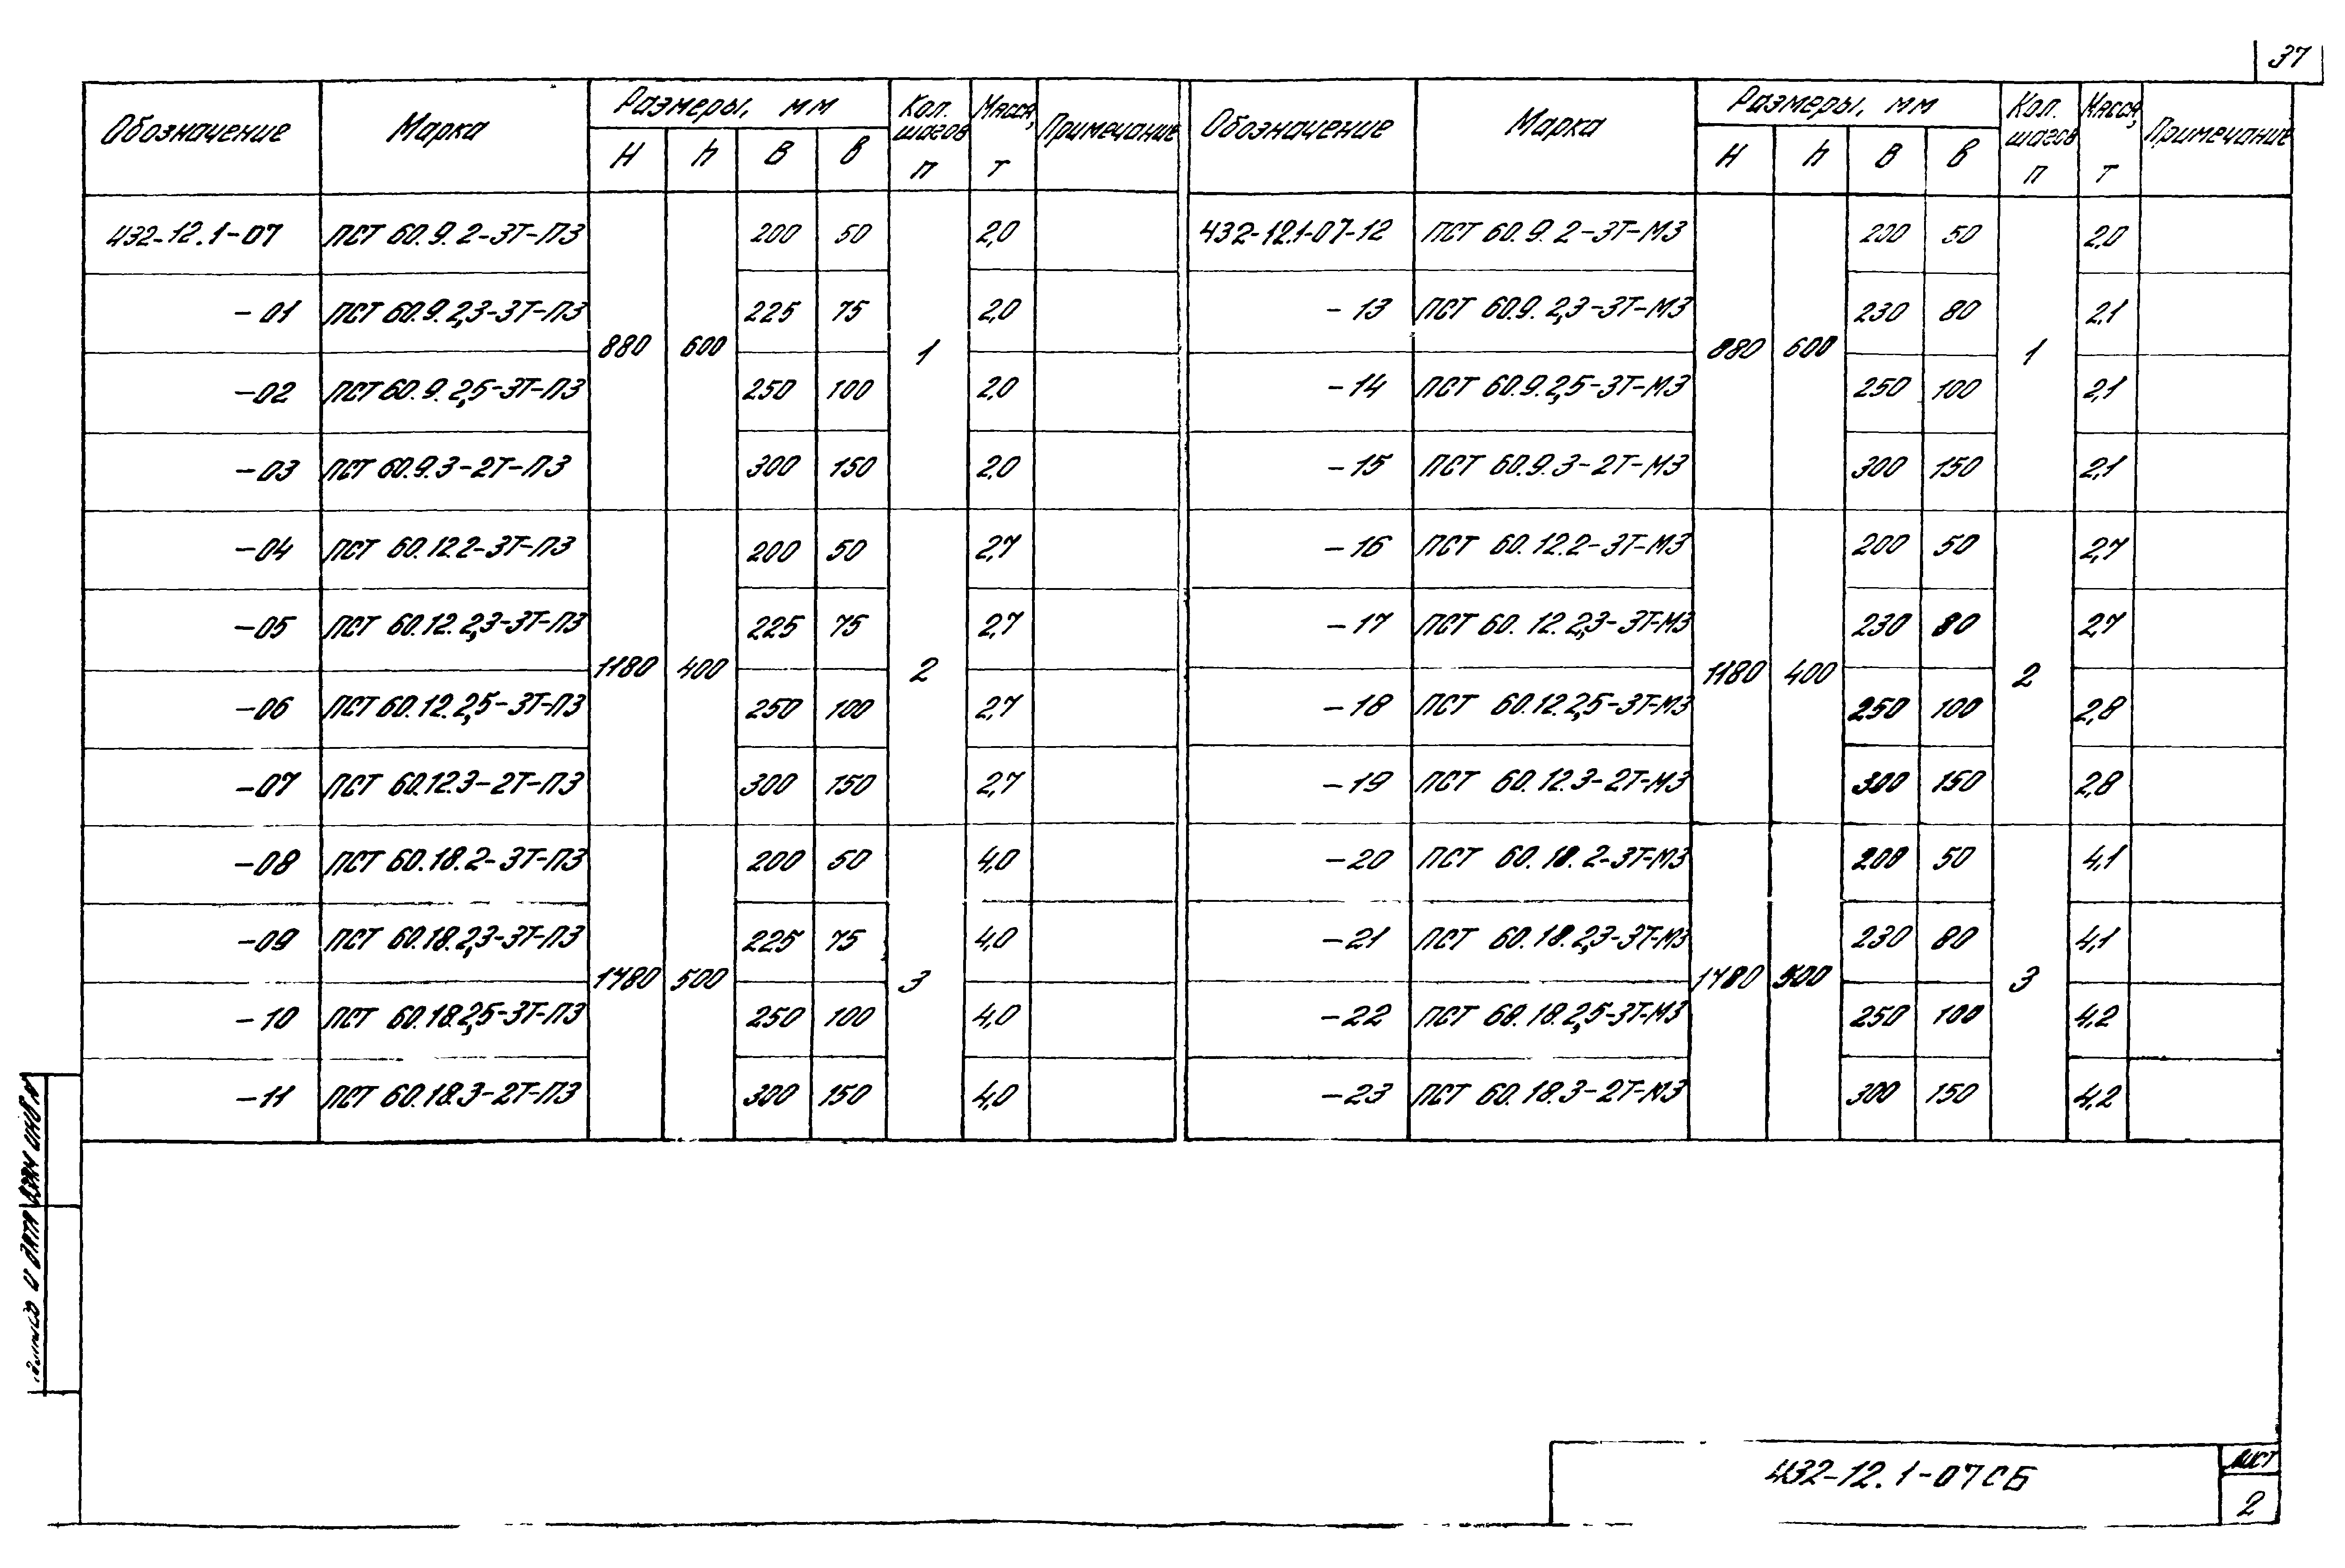 37
Обозначение Марка Размеры, мм Кол. шагов п Масса, т Примечание
H h B в
432-12.1-07 ПСТ 60.9.2-3Т-П3 880 600 200 50 1 2,0
-01 ПСТ 60.9.2,3-3Т-П3 225 75 2,0
-02 ПСТ 60.9.2,5-3Т-П3 250 100 2,0
-03 ПСТ 60.9.3-2Т-П3 300 150 2,0
-04 ПСТ 60.12.2-3Т-П3 1180 400 200 50 2 2,7
-05 ПСТ 60.12.2,3-3Т-П3 225 75 2,7
-06 ПСТ 60.12.2,5-3Т-П3 250 100 2,7
-07 ПСТ 60.12.3-2Т-П3 300 150 2,7
-08 ПСТ 60.18.2-3Т-П3 1780 500 200 50 3 4,0
-09 ПСТ 60.18.2,3-3Т-П3 225 75 4,0
-10 ПСТ 60.18.2,5-3Т-П3 250 100 4,0
-11 ПСТ 60.18.3-2Т-П3 300 150 4,0
Обозначение Марка Размеры, мм Кол. шагов п Масса, т Примечание
H h B в
432-12.1-07-12 ПСТ 60.9.2-3Т-М3 880 600 200 50 1 2,0
-13 ПСТ 60.9.2,3-3Т-М3 230 80 2,1
-14 ПСТ 60.9.2,5-3Т-М3 250 100 2,1
-15 ПСТ 60.9.3-2Т-М3 300 150 2,1
-16 ПСТ 60.12.2-3Т-М3 1180 400 200 50 2 2,7
-17 ПСТ 60.12.2,3-3Т-М3 230 80 2,7
-18 ПСТ 60.12.2,5-3Т-М3 250 100 2,8
-19 ПСТ 60.12.3-2Т-М3 300 150 2,8
-20 ПСТ 60.18.2-3Т-М3 1780 500 200 50 3 4,1
-21 ПСТ 60.18.2,3-3Т-М3 230 80 4,1
-22 ПСТ 60.18.2,5-3Т-М3 250 100 4,2
-23 ПСТ 60.18.3-2Т-М3 300 150 4,2
и дата
432-12.1-07СБ
лист
2